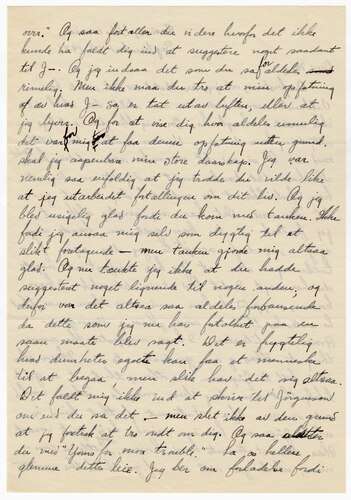 orr." Og saa fortaller du videre hvorfor det ikke
kunde ha faldt dig ind at suggestere noget saadant
til J—. Og jeg indsaa det som du sa for aldeles
rimelig. Men ikke maa du tro at min opfatning
af av hvad J— sa er tat ut av luften, eller at
jeg Og for at vise dig hvor aldeles umulig
det var for mig at faa denne opfatning uten grund,
skal jeg aapenbare min store daarskap. Jeg var
nemlig saa enfoldig at jeg trodde du vilde like
at jeg utarbeidet fortellingen om dit hus. Og jeg
blev usigelig glad fordi du kom med tanken. Ikke
fordi jeg ansaa mig selv som dygtig til et
slikt foretagende — men tanken gjorde mig altsaa
glad. Og nu tænkte jeg ikke at du hadde
suggestert noget lignende til nogen anden, og
derfor var det altsaa saa aldeles forbausende
da dette som jeg nu har fortalt paa en
saan maate blev sagt. Det er frygtelig
hvad dumheter kan faa et menneske
til at begaa, men slik har det sig altsaa.
Det faldt mig ikke ind at skrive til Jörgenson
om du sa det — men slet ikke av den grund
at jeg at tro ondt om dig. Og saa
du med "Yours for more trouble." La os hellere
glemme dette hele. Jeg ber om forladelse fordi